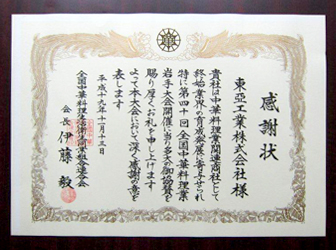 感謝状
東亞工業株式会社様
貴社は中華料理業関連商社として
終始業界の育成発展に寄与せられ
特に第四十一回全国中華料理業
岩手大会開催に当り多大の御協賛を
賜り厚くお礼を申し上げます
よって本大会において深く感謝の意を
表します
平成十九年十一月十三日
全国中華料理生活衛生同業組合連合会
会長 伊藤 毅